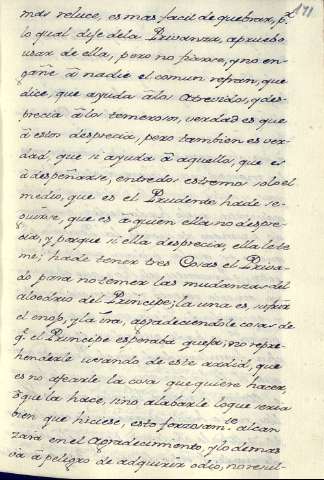 171
mas reluce, es mas facil de quebrar, pr.
lo qual dije de la Privanza, apruebo
usar de ella, pero no fiarse, y no en-
gañe â nadie el comun refran, que
dice, que ayuda âlos atrevidos, y des-
precia âlos temerosos, verdad es que
â estos desprecia, pero tambien es ver-
dad, que si ayuda â aquellos, que es
â despeñarse, entre dos estremos solo el
medio, que es el Prudente hade se-
guirse, que es â quien ella no despre-
cia, y porque si ella desprecia, ella le te
me; hade tener tres Cosas el Priva-
do para no temer las mudanzas del
alvedrio del Principe; la una es, sufrir
el enojo, y la Ira, agradeciendole cosas de
qe. el Principe esperaba quejas; no repre-
henderle usando de este ardid, que
es no afearle la cosa que quiere hacer,
ô que la hace, sino alabarle lo que seria
bien que hiciese, esto forzosamte. alcan
zara en el Agradecimiento, y lo demas
vâ â peligro de adquirir odio, no resul-